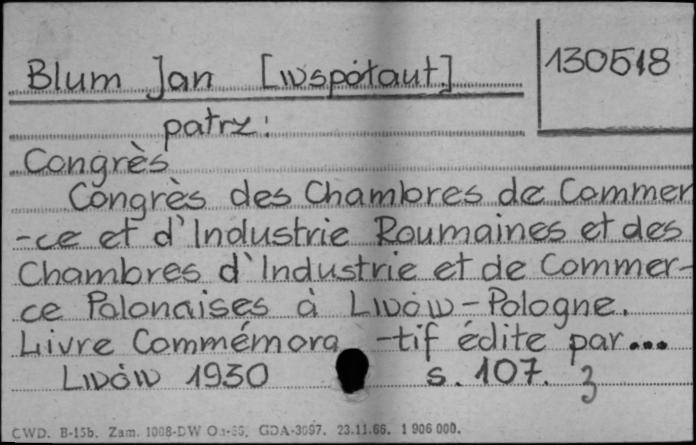 Blum Jan [współaut.] 130518
patrz:
Congrès
Congrès des Chambres de Commer
-ce et d'Industrie Roumaines et des
Chambres d'Industrie et de Commer-
ce Polonaises à Lwów-Pologne.
Livre Commémora -tif édite par...
Lwów 1930 s. 107. 3
CWD. B-15b. Zam. 1008-DW GDA-3097. 23.11.66. 1 906 000.